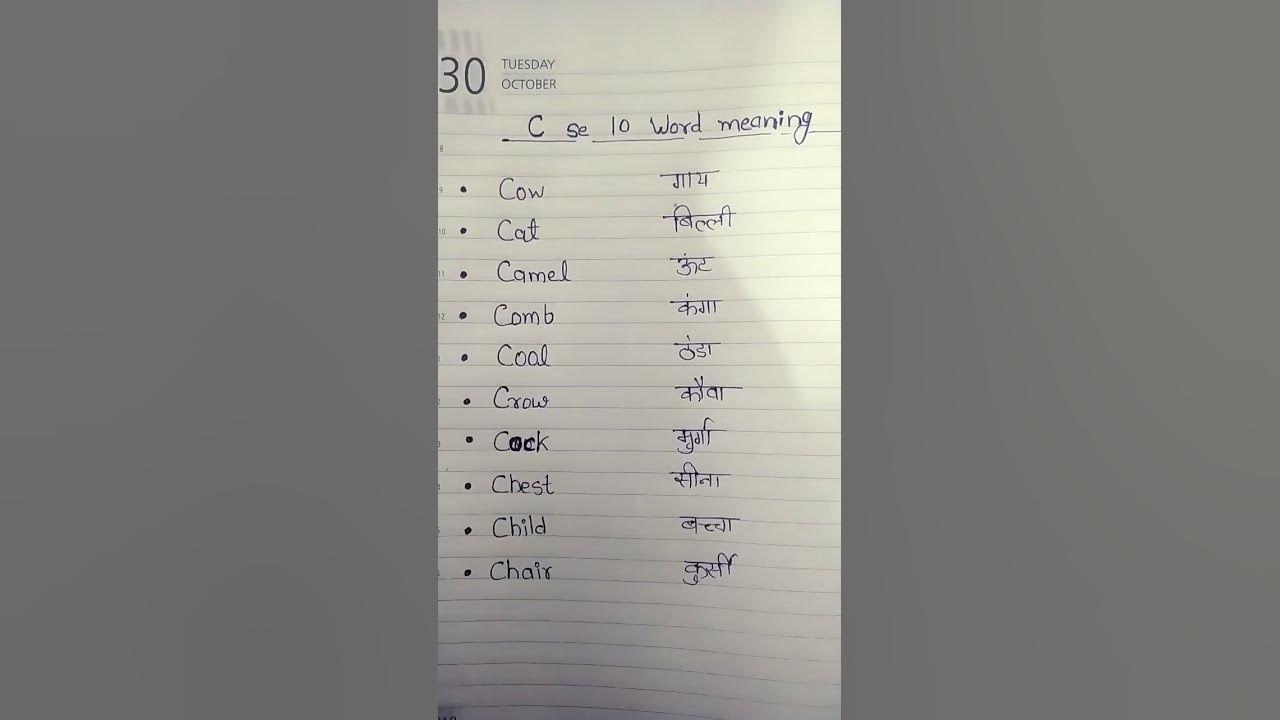 30 TUESDAY
OCTOBER
C se 10 Word meaning
8
9 • Cow गाय
10 • Cat बिल्ली
11 • Camel ऊंट
12 • Comb कंगा
1 • Coal ठंडा
2 • Crow कौवा
3 • Cock मुर्गा
4 • Chest सीना
5 • Child बच्चा
6 • Chair कुर्सी